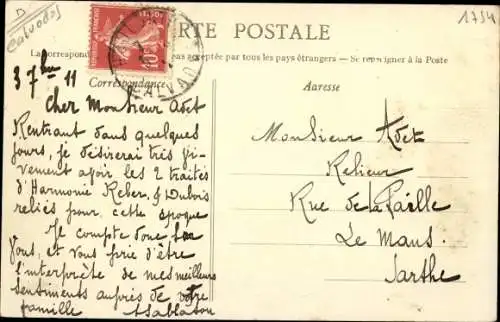 D
Calvados
1754
CARTE POSTALE
La Correspondance pas acceptée par tous les pays étrangers — Se renseigner à la Poste
Correspondance
Adresse
10
CALVADOS
3 7bre 11
Cher Monsieur Adet
Rentrant dans quelques
jours, je désirerai très vi-
vement avoir les 2 traités
d'Harmonie Reber & Dubois
reliés pour cette époque
Je compte donc sur
Vous, et vous prie d'être
l'interprète de mes meilleurs
sentiments auprès de votre
famille
Monsieur Adet
Relieur
Rue de la Paille
Le Mans.
Sarthe